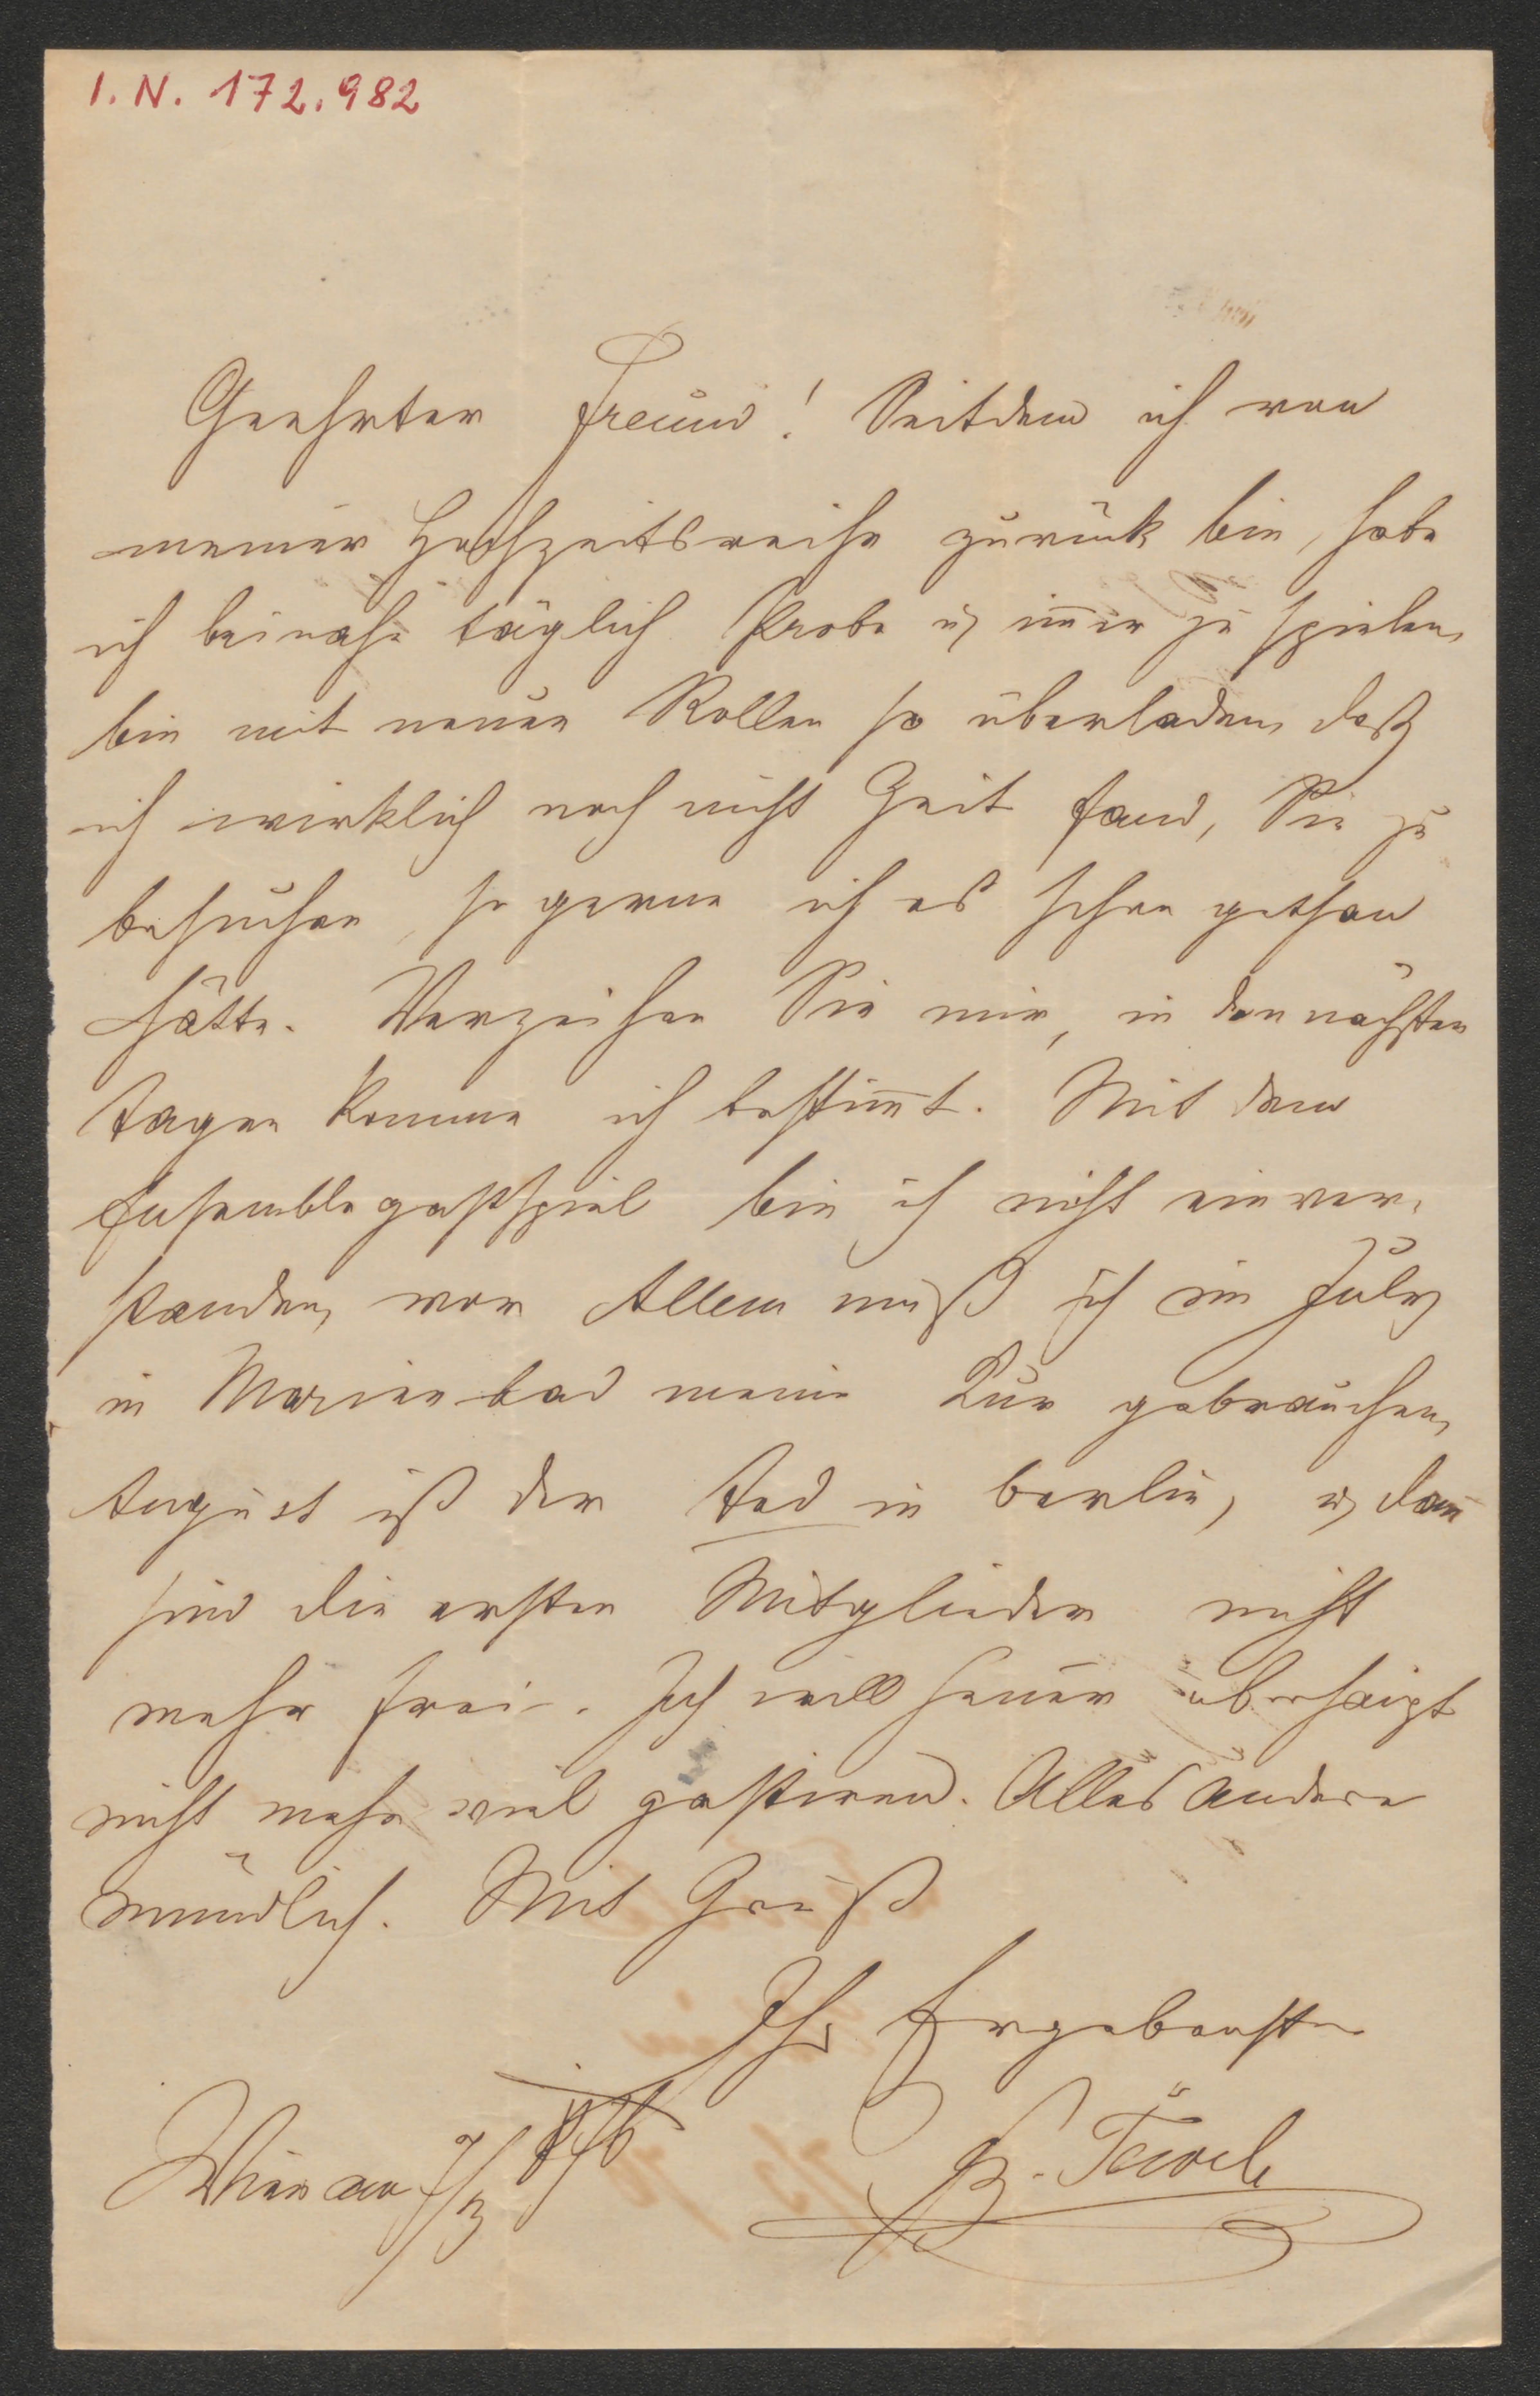 I. N. 172.982
Geehrter Freund! Seitdem ich von
meiner Hochzeitsreise zurück bin, habe
ich beinahe täglich Probe u im̅er zu spielen,
bin mit neuen Rollen so überladen, daß
ich wirklich noch nicht Zeit fand, Sie zu
besuchen, so gerne ich es schon gethan
hätte. Verzeihen Sie mir, in den nächsten
Tagen komme ich bestim̅t. Mit dem
Ensemblegastspiel bin ich nicht einver-
standen, vor Allem muß ich im July
in Marienbad meine Kur gebrauchen,
August ist der Tod in Berlin, u dan̅
sind die ersten Mitglieder nicht
mehr frei. Ich will heuer überhaupt
nicht mehr viel gastiren. Alles Andere
mündlich. Mit Gruß
Ihr Ergebenster
Wien am 7/3